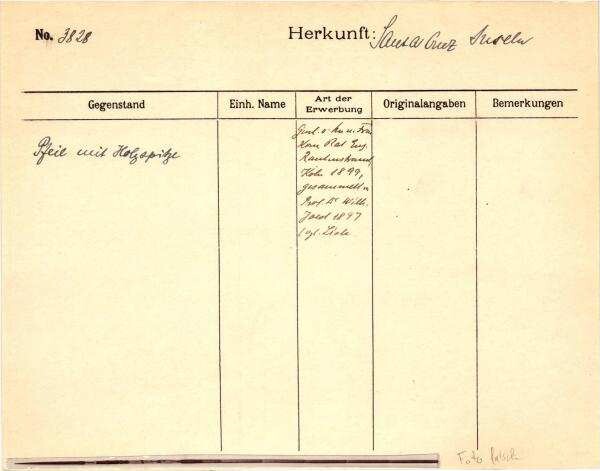 No. 3828
Herkunft: Santa Cruz Inseln
Gegenstand
Einh. Name
Art der
Erwerbung
Originalangaben
Bemerkungen
Pfeil mit Holzspitze
Gesch. v. Hrn. u. Frau
Kom Rat Eug.
Rautenstrauch,
Köln 1899,
gesammelt v.
Prof. Dr Wilh.
Joest 1897
vgl. Liste
Foto falsch